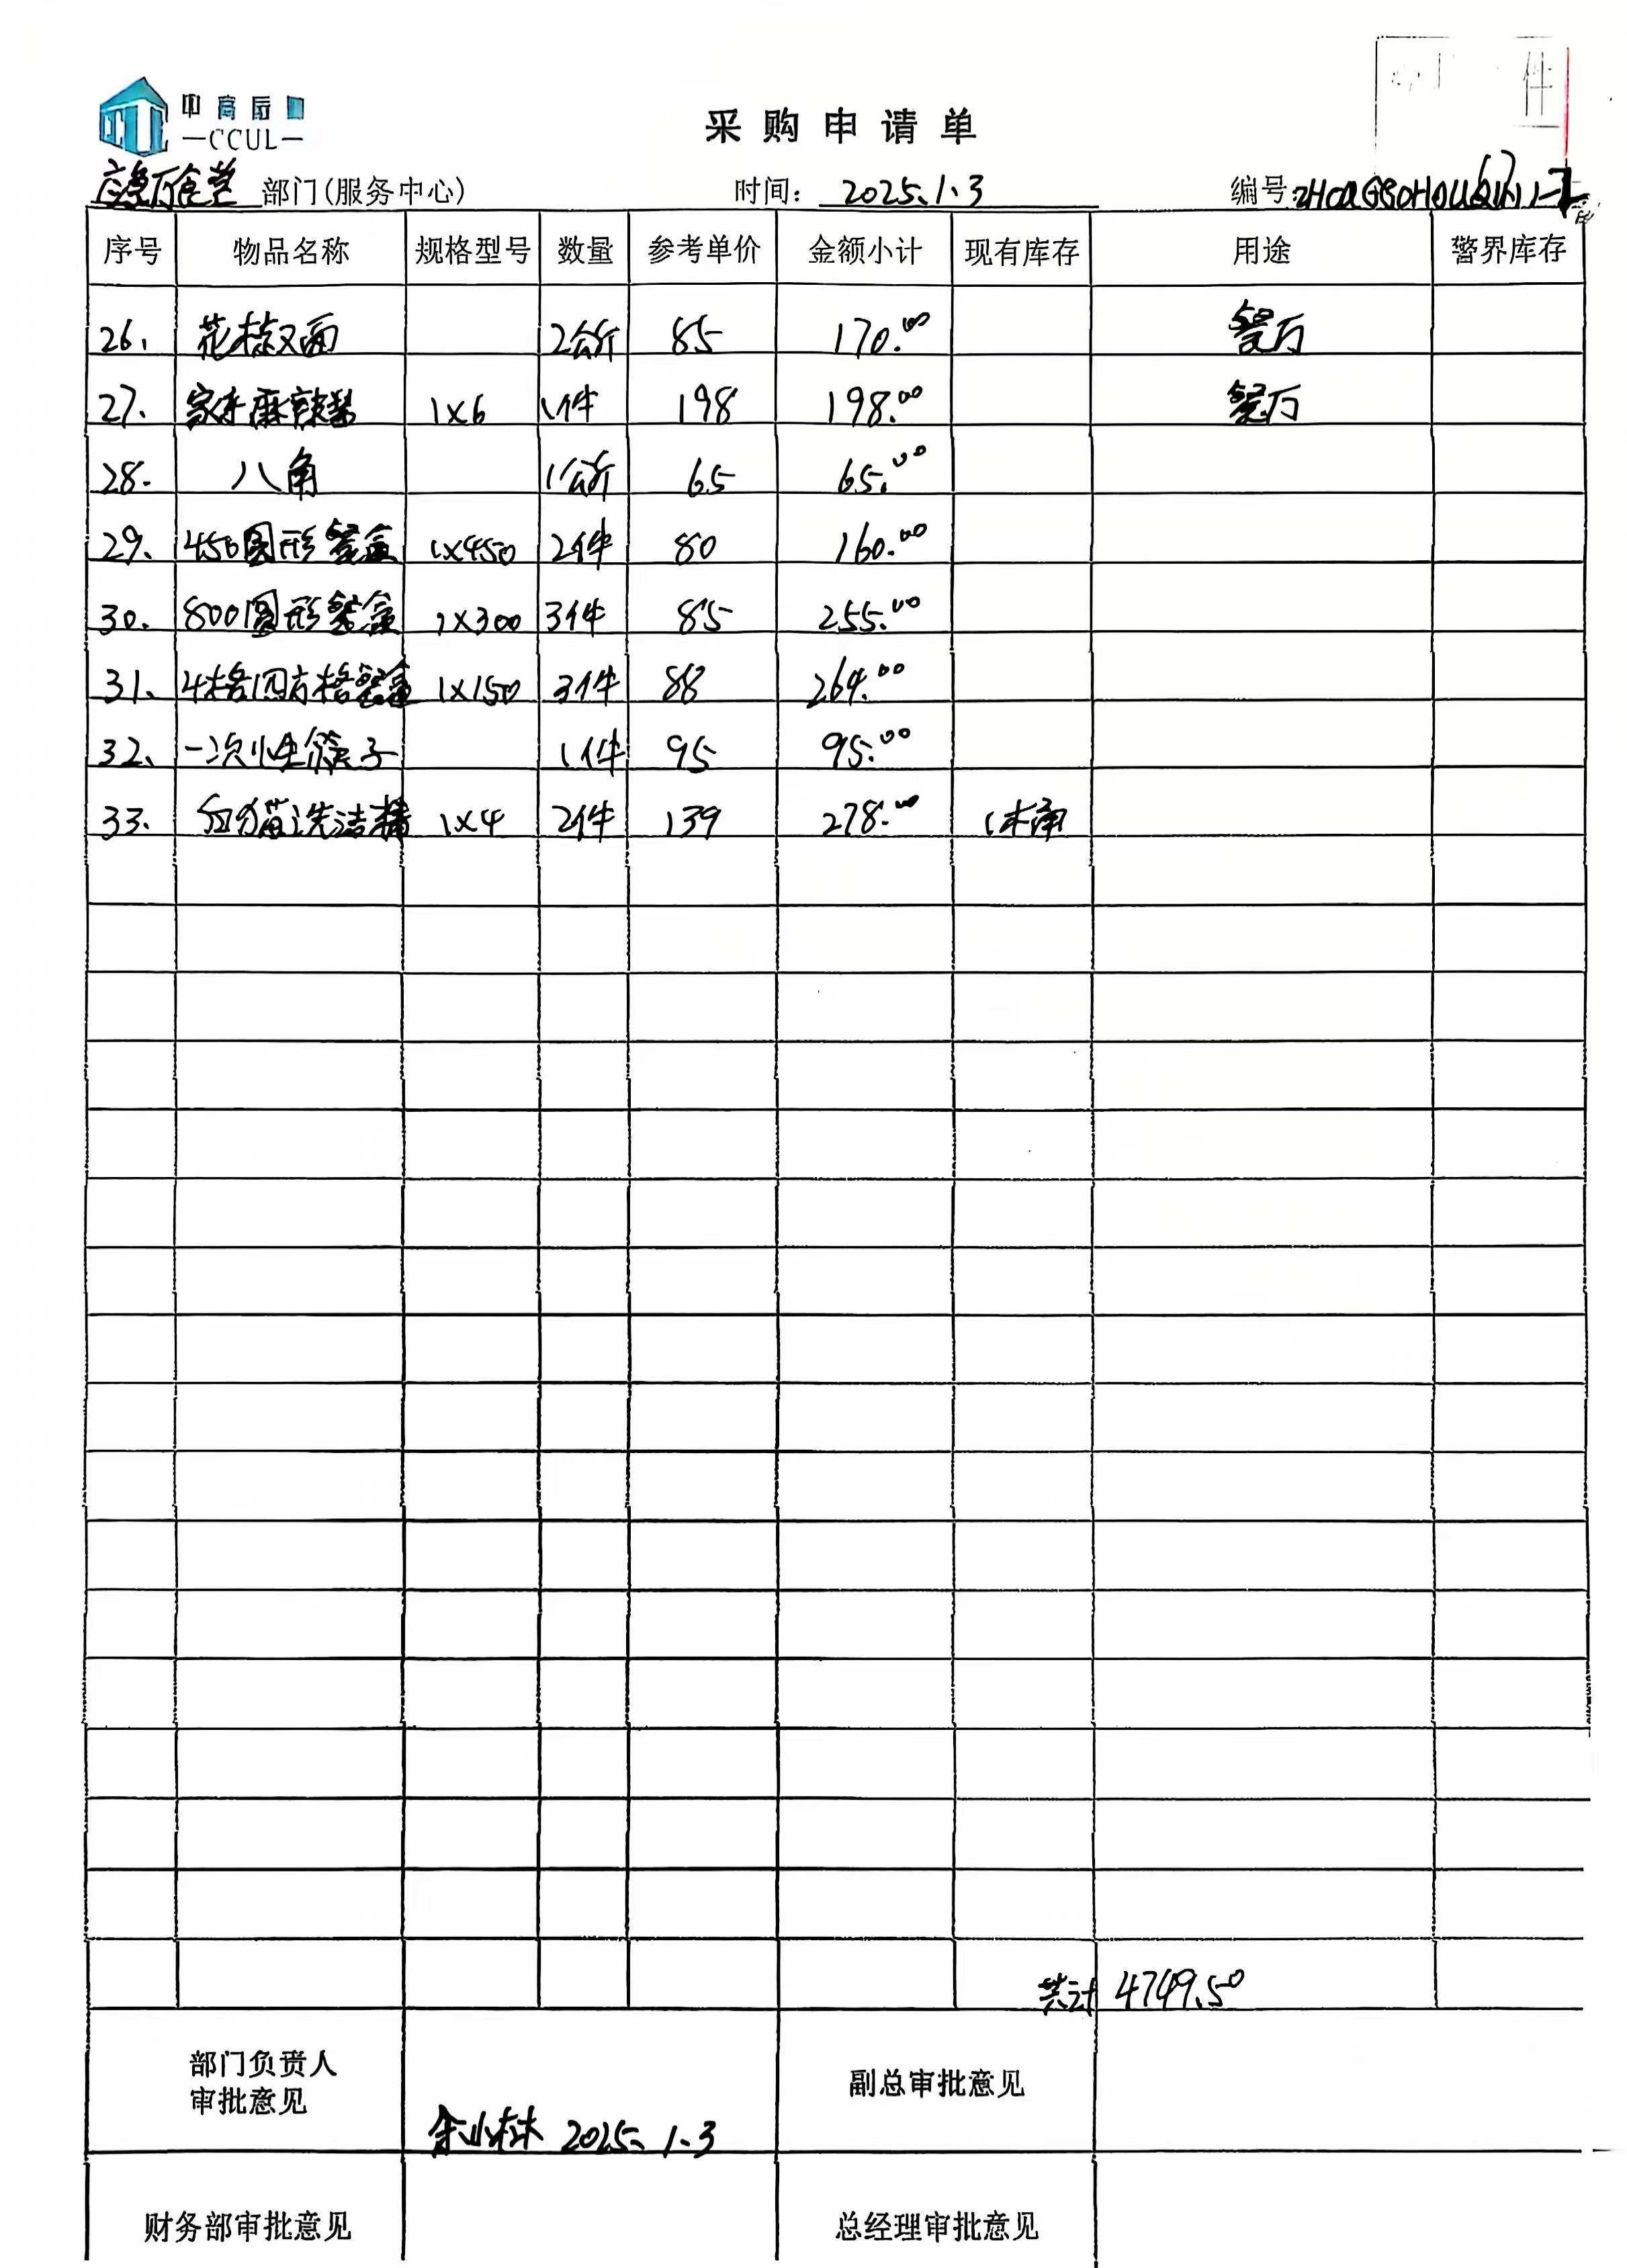 中高后勤
—CCUL—
件
采购申请单
应急厅食堂 部门(服务中心) 时间: 2025.1.3 编号:
序号 物品名称 规格型号 数量 参考单价 金额小计 现有库存 用途 警界库存
26. 花椒又面 2公斤 85 170.00 餐厅
27. 家乐麻辣酱 1x6 1件 198 198.00 餐厅
28. 八角 1公斤 65 65.00
29. 450圆形餐盒 1x450 2件 80 160.00
30. 800圆形餐盒 1x300 3件 85 255.00
31. 4格四方格餐盒 1x150 3件 88 264.00
32. 一次性筷子 1件 95 95.00
33. 白猫洗洁精 1x4 2件 139 278.00 1桶
共计 4749.50
部门负责人
审批意见
副总审批意见
余小林 2025.1.3
财务部审批意见 总经理审批意见